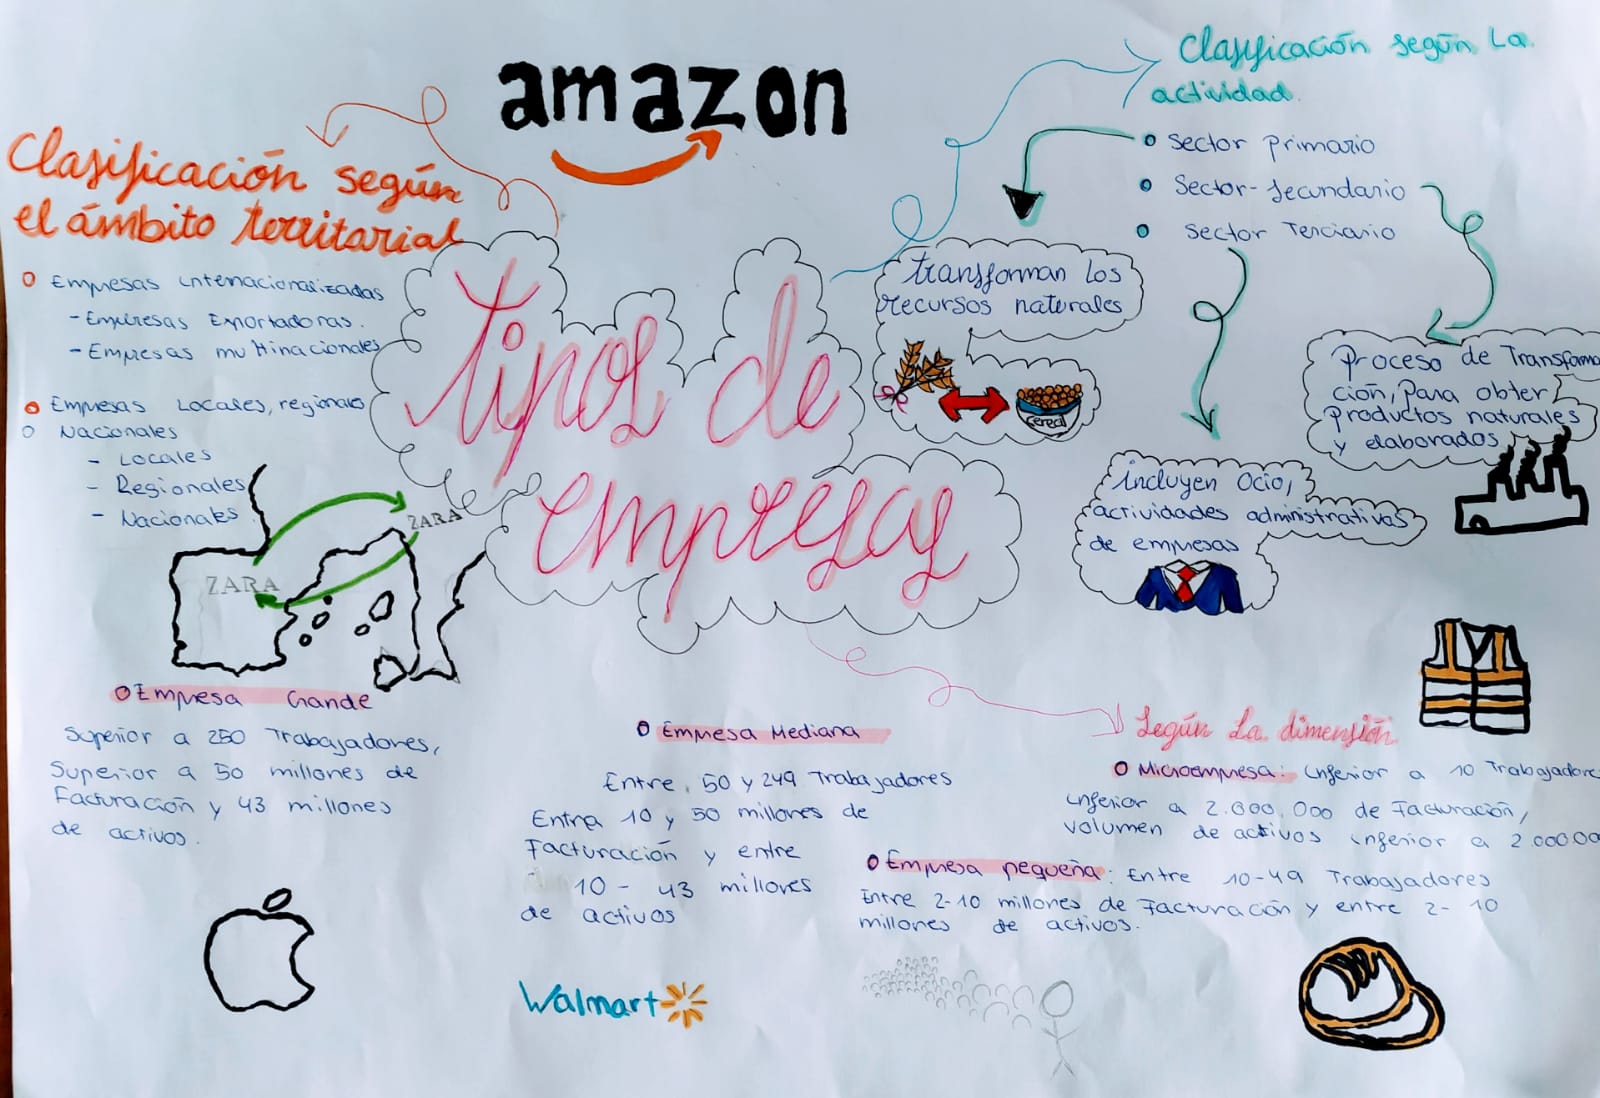 amazon
Clasificación según
el ámbito territorial
Empresas internacionalizadas
- Empresas Exportadoras.
- Empresas multinacionales
Empresas Locales, regionales
Nacionales
- Locales
- Regionales
- Nacionales
ZARA
ZARA
tipos de
empresas
Clasificación según La
actividad.
Sector primario
Sector-Secundario
Sector Terciario
transforman los
recursos naturales
cereal
Proceso de Transforma
ción, para obter
productos naturales
y elaborados
incluyen Ocio,
actividades administrativas
de empresas
Empresa Grande
Superior a 250 Trabajadores,
Superior a 50 millones de
Facturación y 43 millones
de activos.
Empresa Mediana
Entre 50 y 249 Trabajadores
Entra 10 y 50 millones de
Facturación y entre
10 - 43 millones
de activos
Según La dimensión
Microempresa: inferior a 10 Trabajadore
inferior a 2.000.000 de Facturación,
volumen de activos inferior a 2.000.00
Empresa pequeña: Entre 10-49 Trabajadores
Entre 2-10 millones de Facturación y entre 2-10
millones de activos.
Walmart